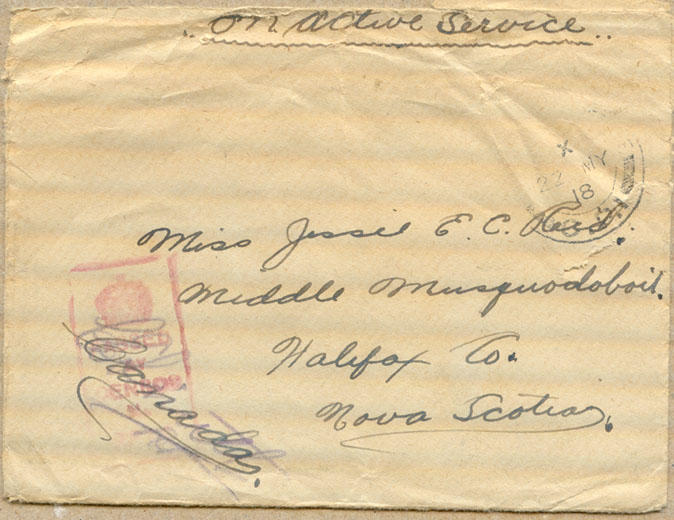 On Active Service
X
22 MY
18
Miss Jessie E. C. Reid.
Middle Musquodoboit.
Halifax Co.
Nova Scotia.
Canada.